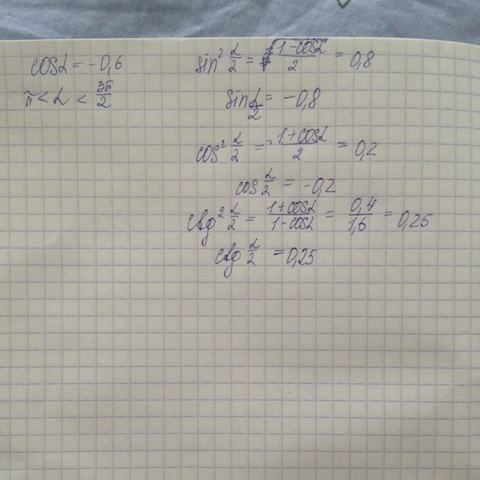 cosα = -0,6
π < α < 3π/2
sin² α/2 = 1-cosα/2 = 0,8
sin α/2 = -0,8
cos² α/2 = 1+cosα/2 = 0,2
cos α/2 = -0,2
ctg² α/2 = 1+cosα/1-cosα = 0,4/1,6 = 0,25
ctg α/2 = 0,25